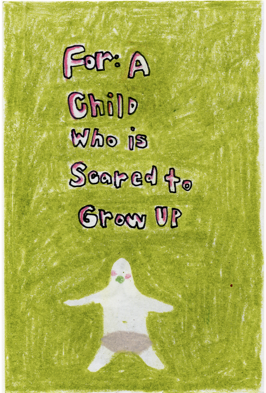 For: A
Child
Who is
Scared to
Grow Up